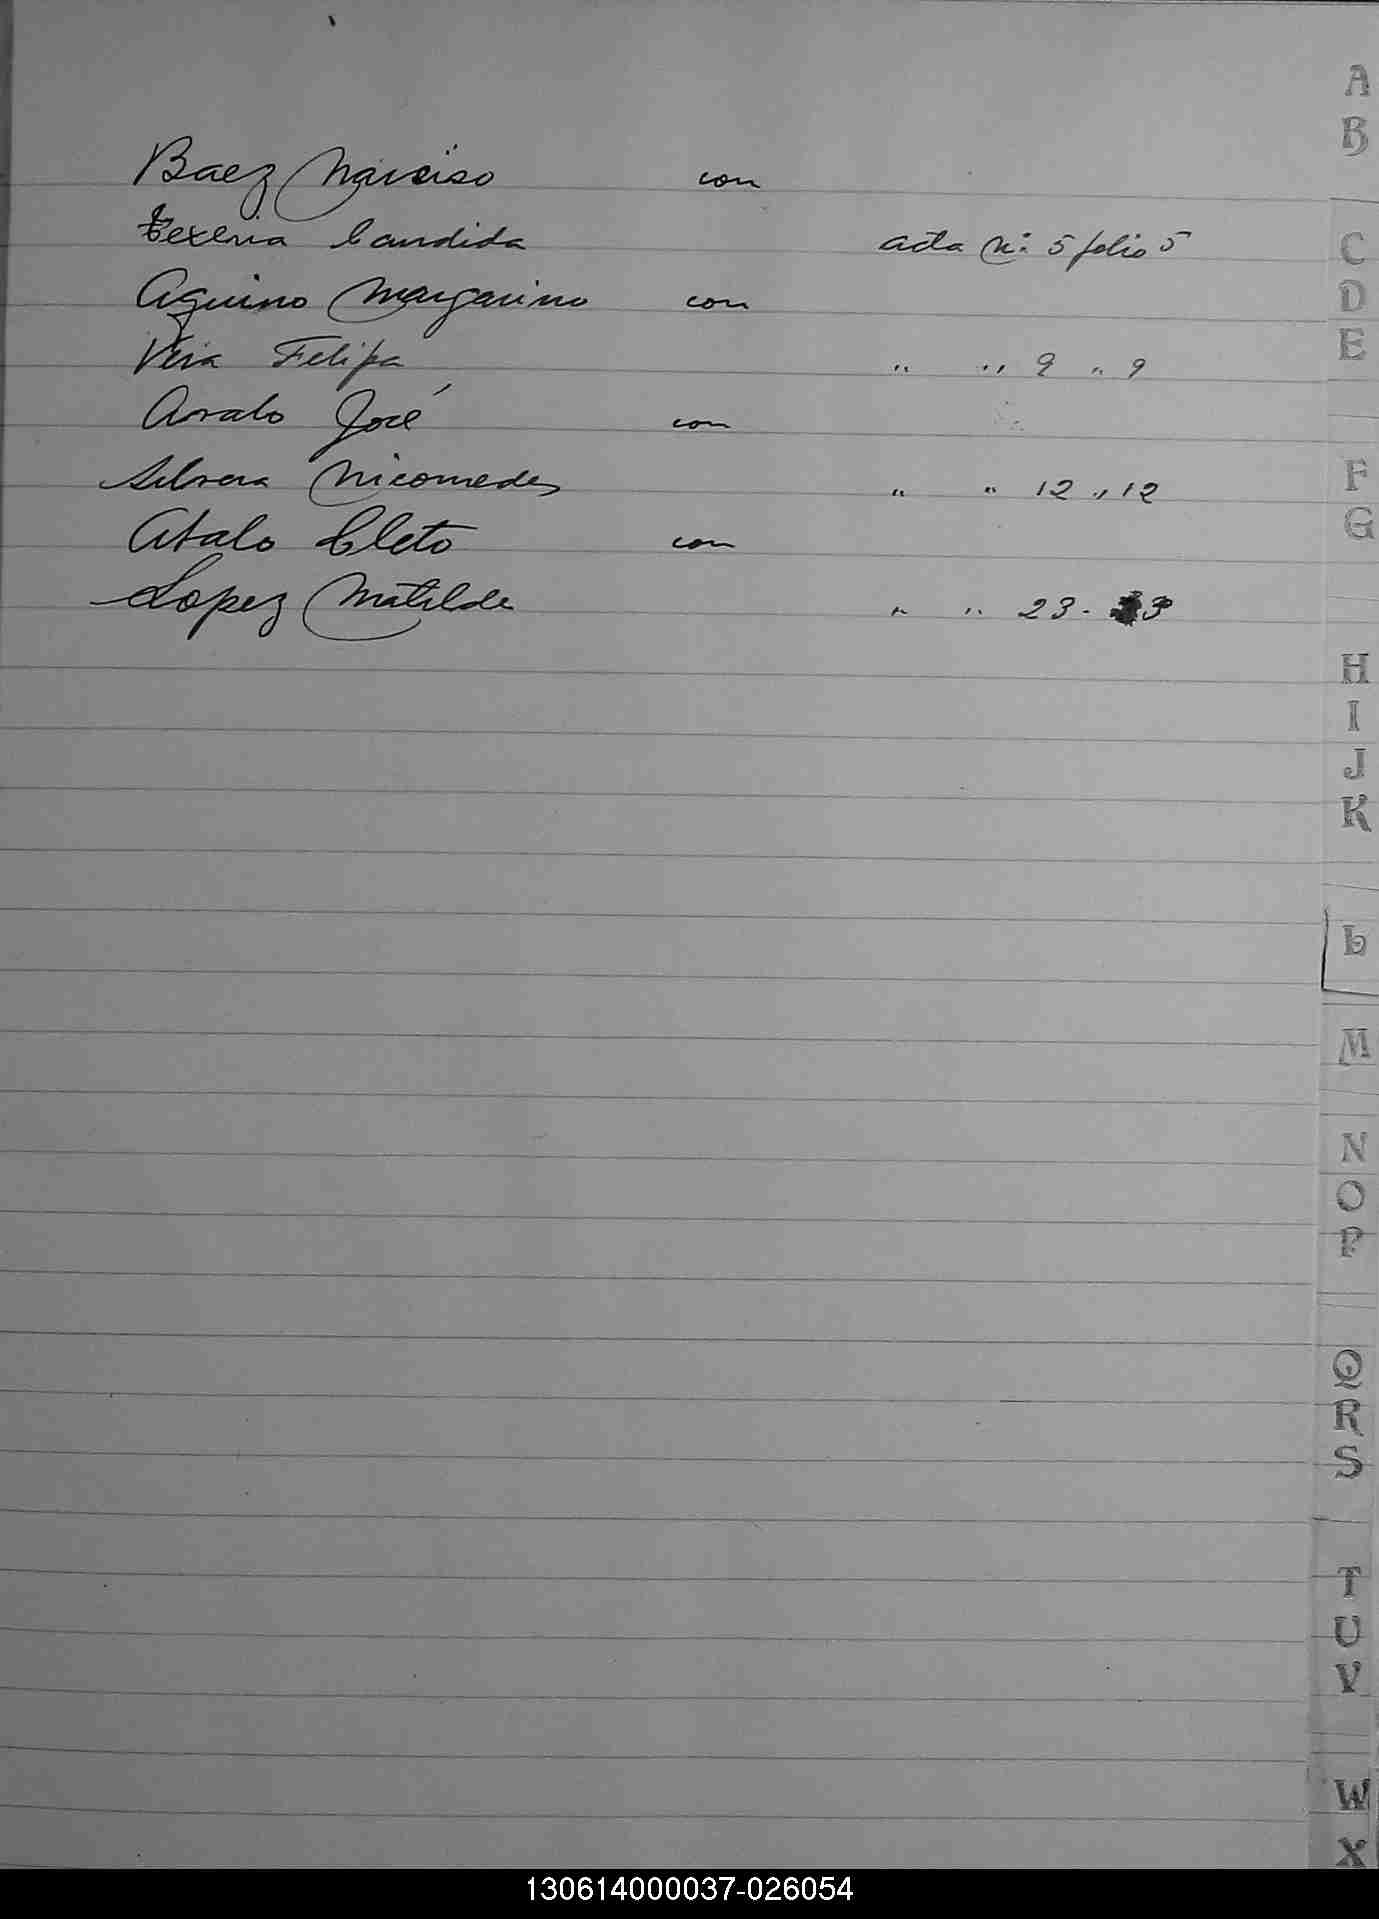 Baez Narciso con
Texeria Candida acta N: 5 folio 5
Aquino Margarino con
Vera Felipa " " 9 " 9
Avalo José con
Silvera Nicomedes " " 12 " 12
Abalo Cleto con
Lopez Matilde " " 23 - 23
A
B
C
D
E
F
G
H
I
J
K
L
M
N
O
P
Q
R
S
T
U
V
W
X
130614000037-026054